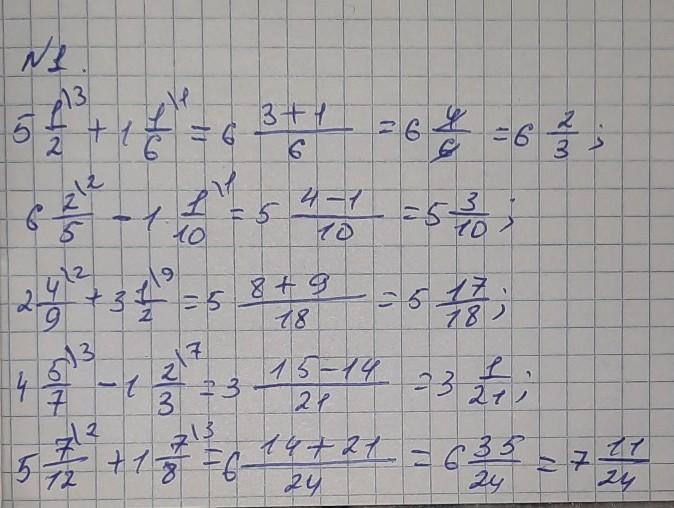 №1.
5 1/2\3 + 1 1/6\1 = 6 (3+1)/6 = 6 4/6 = 6 2/3;
6 2/5\2 - 1 1/10\1 = 5 (4-1)/10 = 5 3/10;
2 4/9\2 + 3 1/2\9 = 5 (8+9)/18 = 5 17/18;
4 5/7\3 - 1 2/3\7 = 3 (15-14)/21 = 3 1/21;
5 7/12\2 + 1 7/8\3 = 6 (14+21)/24 = 6 35/24 = 7 11/24